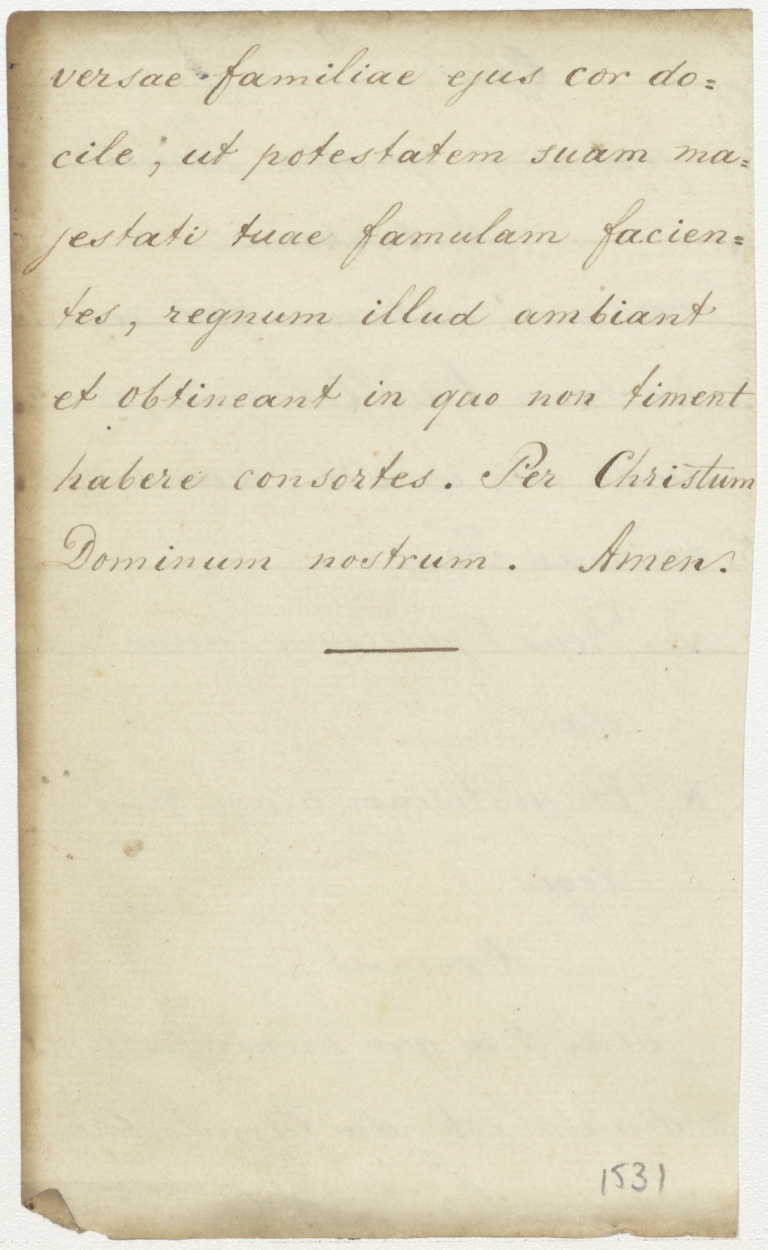 versae familiae ejus cor do=
cile, ut potestatem suam ma=
jestati tuae famulam facien=
tes, regnum illud ambiant
et obtineant in quo non timent
habere consortes. Per Christum
Dominum nostrum. Amen.
1531